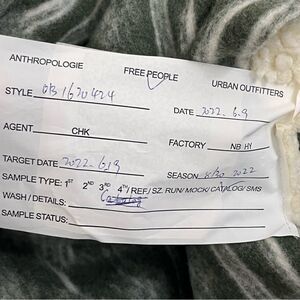 ANTHROPOLOGIE FREE PEOPLE URBAN OUTFITTERS
STYLE OB1620424
DATE 2022-6.9
AGENT CHK
FACTORY NB HY
TARGET DATE 2022-6.9
SEASON 8/30 2022
SAMPLE TYPE: 1ST 2ND 3RD 4TH/ REF/ SZ. RUN/ MOCK/ CATALOG/ SMS
WASH / DETAILS:
SAMPLE STATUS: